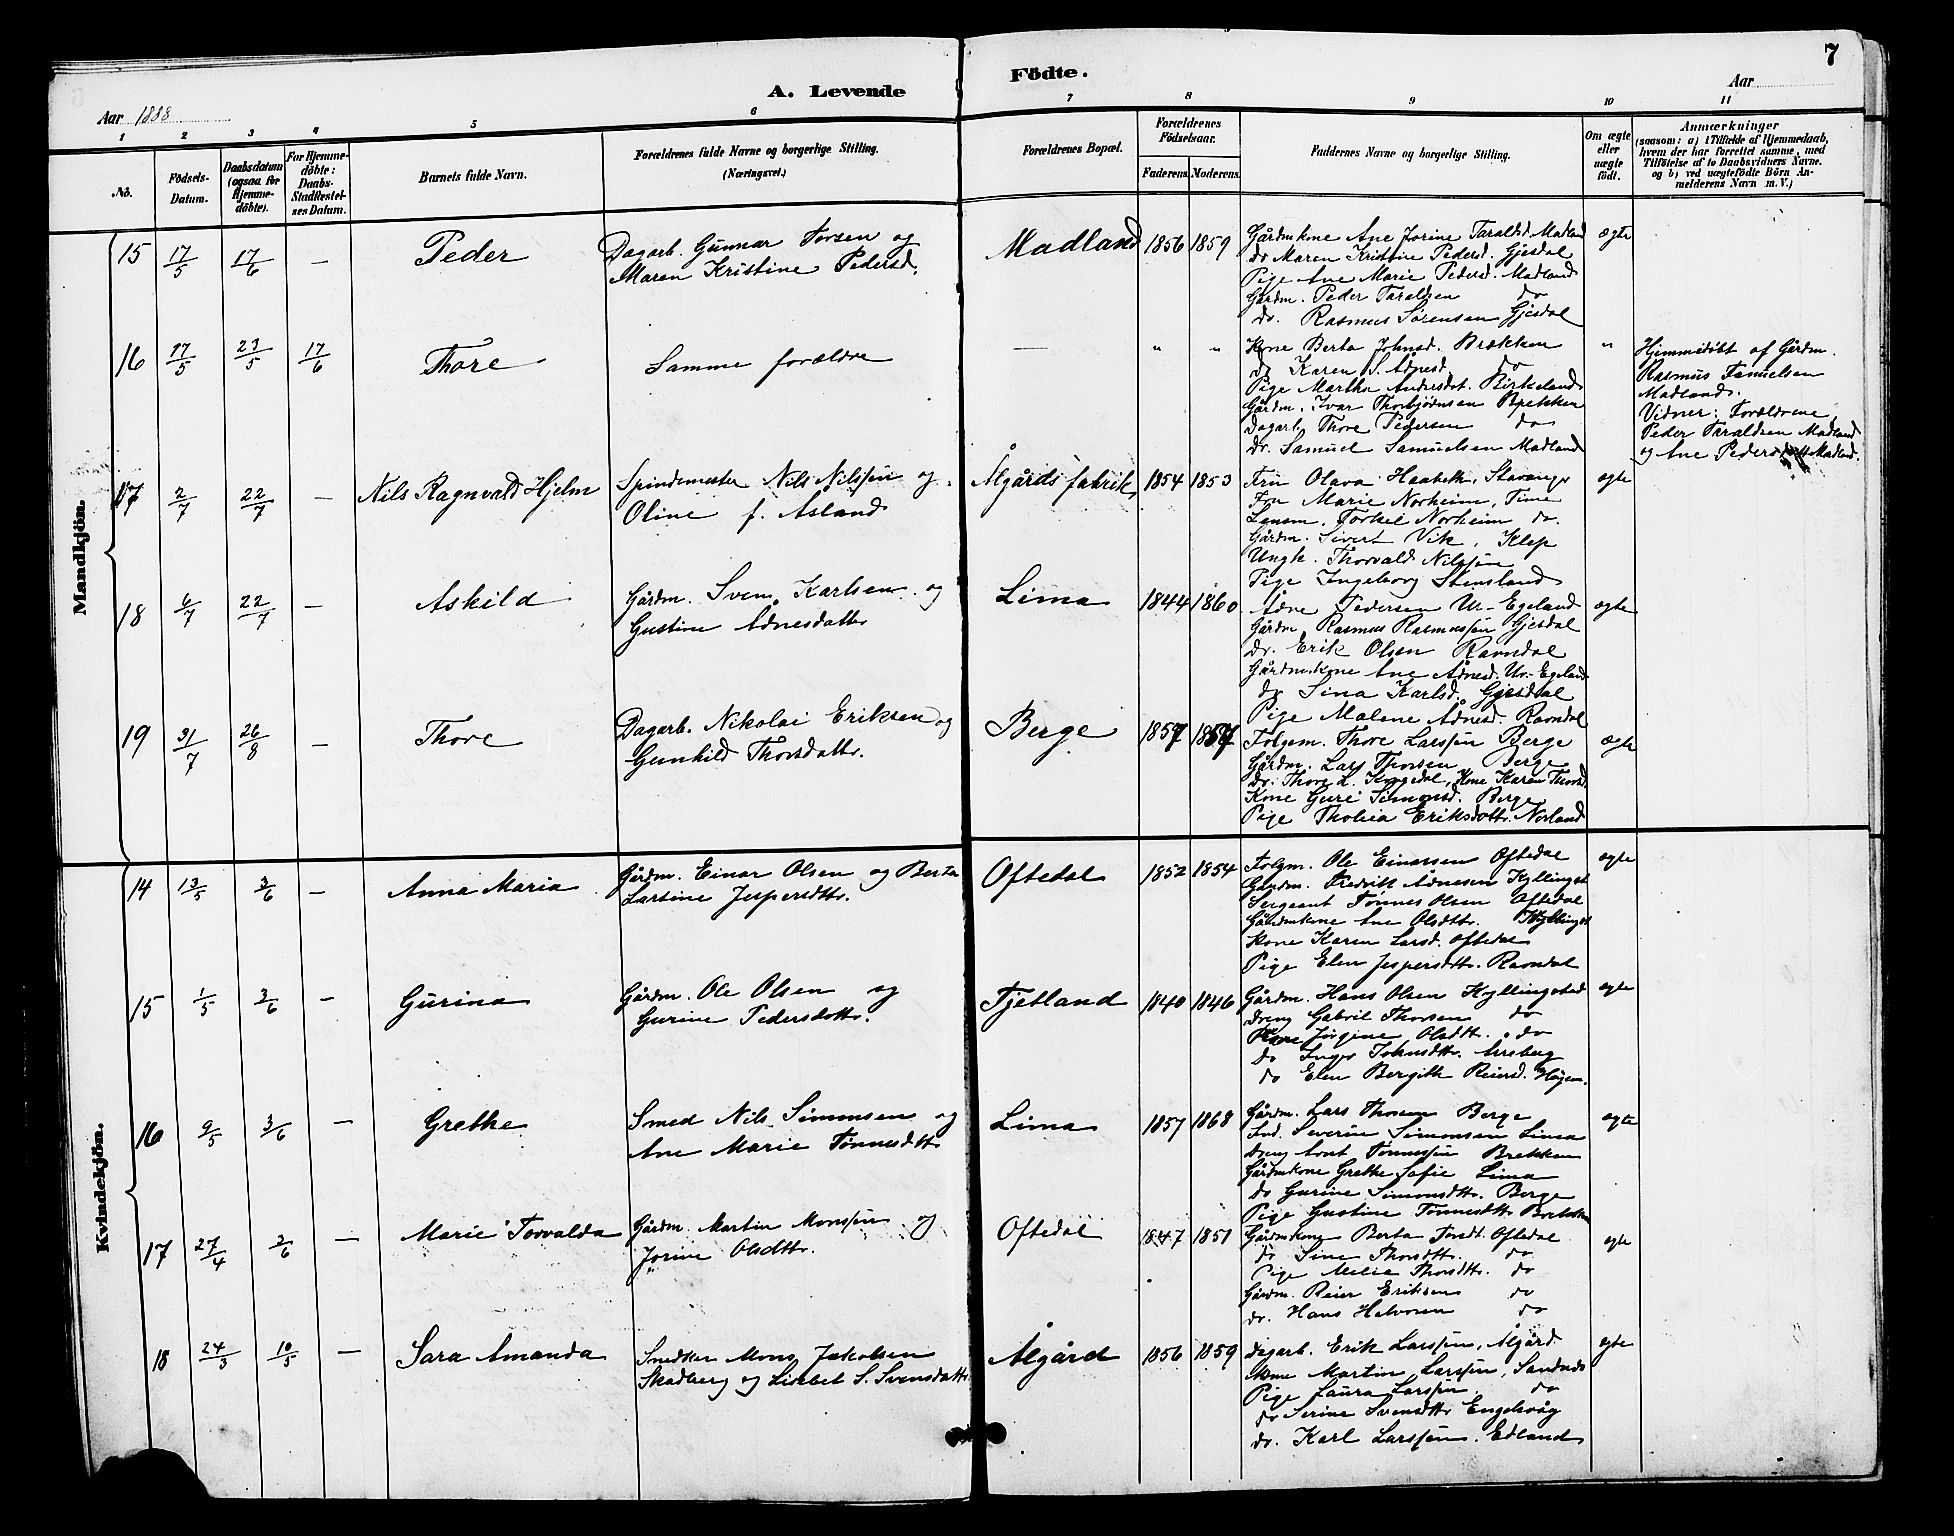 7
A. Levende Födte.
Aar 1888
Aar
1 2 3 4 5 6 7 8 9 10 11
No.
Födsels-Datum.
Daabsdatum (ogsaa for Hjemmedöbte).
For Hjemmedöbte: Daabs-Stadfæstelses Datum.
Barnets fulde Navn.
Forældrenes fulde Navne og borgerlige Stilling. (Næringsvei.)
Forældrenes Bopæl.
Forældrenes Födselsaar.
Faderens. Moderens.
Faddernes Navne og borgerlige Stilling.
Om ægte eller uægte födt.
Anmærkninger
(saasom: a) i Tilfælde af Hjemmedaab, hvem der har forrettet samme, med Tilföielse af to Daabsvidners Navne. og b) ved uægtefödte Börn Anmelderens Navn m. V.)
Mandkjön.
15 17/5 17/6 — Peder
Dagarb. Gunnar Torsen og
Maren Kristine Pedersd.
Madland 1856 1859
Gårdmkone Ane Jorine Taraldsd. Madland
do Maren Kristine Pedersd. Gjesdal
Pige Ane Marie Pedersd. Madland
Gårdm. Peder Taraldsen do
do. Rasmus Sørensen Gjesdal
ægte
16 17/5 23/5 17/6 Thore
Samme forældre
— " "
Kone Berta Johnsd. Brækken
do Karen S. Ådnesd. do
Pige Martha Andersdat. Birkeland
Gårdm. Ivar Thorbjørnsen Brekken
Dagarb. Thore Pedersen do
do. Samuel Samuelsen Madland
"
Hjemmedøbt af Gårdm.
Rasmus Samuelsen
Madland.
Vidner: Forældrene
Peder Taraldsen Madland
og Ane Pedersd Madland.
17 2/7 22/7 — Nils Ragnvald Hjelm
Spindemester Nils Nilssen og
Oline f. Asland
Ålgårds fabrik 1854 1853
Fru Olava Haabeth, Stavanger
Fru Marie Norheim, Time
Lensm. Torkel Norheim do.
Gårdm. Sivert Vik, Klep
Ungk. Thorvald Nilssen
Pige Ingeborg Stensland
ægte
18 6/7 22/7 — Askild
Gårdm. Sven Karlsen og
Gustine Ådnesdattr
Lima 1844 1860
Ådne Pedersen Ur-Egeland
Gårdm. Rasmus Rasmussen Gjesdal
do. Erik Olsen Ravndal
Gårdmkone Ane Ådnesd. Ur-Egeland
do Sina Karlsd. Gjesdal
Pige Malene Ådnesd. Ravndal
ægte
19 31/7 26/8 — Thore
Dagarb. Nikolai Eriksen og
Gunhild Thorsdattr.
Berge 1857 1857
Folgem. Thore Larssen Berge
Gårdm. Lars Thorsen Berge
do. Thore L. Kongedal, Kone Karen Thorsd.
Kone Guri Simonsd. Berge
Pige Tholia Eriksdattr. Norland
ægte
Kvindekjön.
14 13/5 3/6 — Anna Maria
Gårdm. Einar Olsen og Berta
Lartine Jespersdttr.
Oftedal 1852 1854
Folgm. Ole Einarsen Oftedal
Gårdm. Fredrik Ådnesen Kyllingst
Sergeant Tønnes Olsen Oftedal
Gårdmkone Ane Olsdttr. Kyllingst
Kone Karen Larsd. Oftedal
Pige Elen Jespersdttr. Ravndal
ægte
15 1/5 3/6 — Gurina
Gårdm. Ole Olsen og
Gurine Pedersdattr.
Tjetland 1840 1846
Gårdm. Hans Olsen Kyllingsted
Dreng Gabriel Thorsen do
Kone Jørgine Olsdtt. do
do Inger Johnsdttr. Arreberg
do Elen Bergitte Reiersd.
ægte
16 9/5 3/6 — Grethe
Smed Nils Simonsen og
Ane Marie Tønnesdttr
Lima 1857 1868
Gårdm. Lars Thorsen Berge
Ind. Severin Simonsen Lima
Dreng Aont Tønnessen Brekken
Gårdmkone Grethe Sofie Lima
do Gurine Simonsdttr. Berge
Pige Gustine Tønnesdttr Brekken
ægte
17 27/4 3/6 — Marie Torvalda
Gårdm. Martin Monssen og
Jorine Olsdttr.
Oftedal 1847 1851
Gårdmkone Berta Torsdt. Oftedal
do Sine Thorsdttr. do
Pige Melie Thorsdttr. do
Gårdm. Reier Eriksen do
do. Hans Halvorsen do
ægte
18 24/3 10/5 — Sara Amanda
Snedker Mons Jakobsen
Skadberg og Lisebet S. Svensdattr
Ålgård 1856 1859
Dagarb. Erik Larssen, Ålgård
Kone Martin Larssen, Sandnes
Pige Laura Larssen do
do Serine Svensdttr Engelsvåg
do. Karl Larssen. Edland
ægte